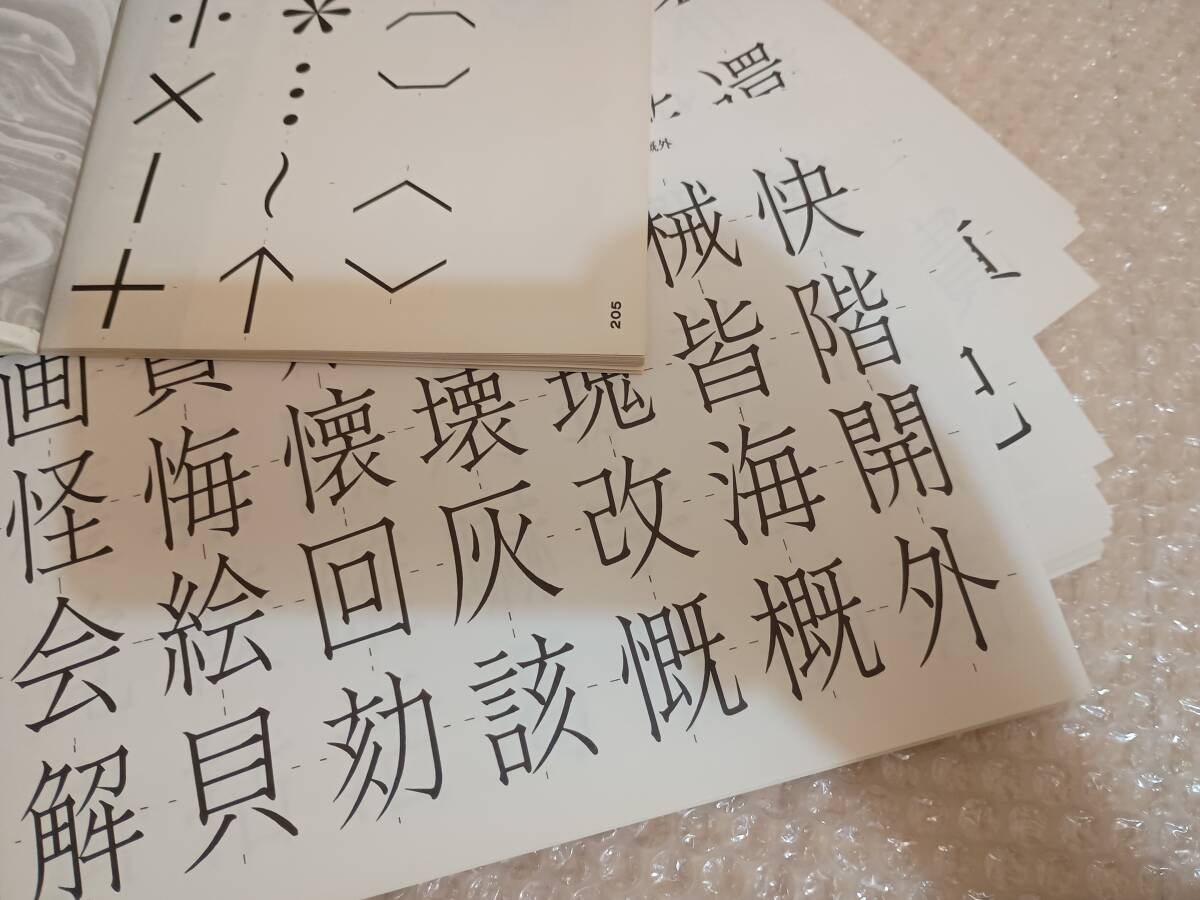 +−×÷
→〜…*
〈〉〔〕
205
外
械快
画
怪悔懐壊塊皆階
会絵回灰改海開
解貝劾該慨概外